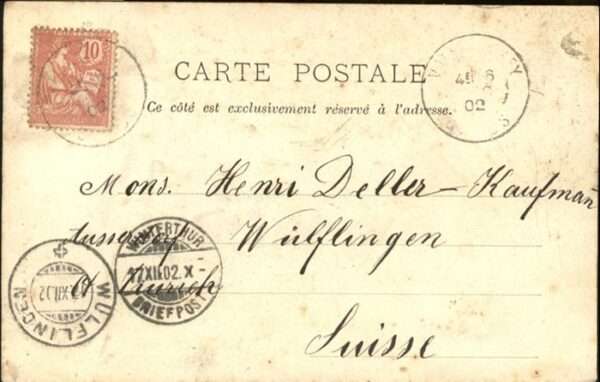 10
CARTE POSTALE
45 6
02
Ce côté est exclusivement réservé à l'adresse.
Mons. Henri Deller-Kaufmann
Wülflingen
Suisse
WINTERTHUR
17.XII.02.X-
BRIEFPOST
XII.02
WÜLFLINGEN